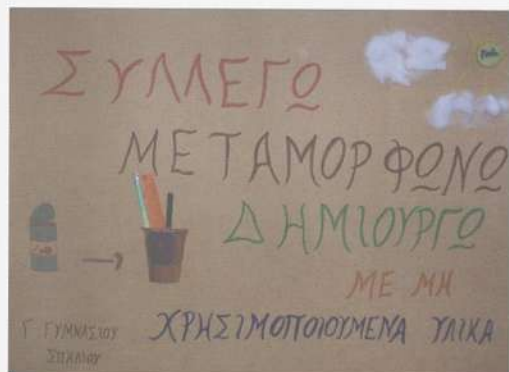 ΣΥΛΛΕΓΩ
ΜΕΤΑΜΟΡΦΩΝΩ
ΔΗΜΙΟΥΡΓΩ
ΜΕ ΜΗ
ΧΡΗΣΙΜΟΠΟΙΟΥΜΕΝΑ ΥΛΙΚΑ
Γ ΓΥΜΝΑΣΙΟΥ
ΣΠΗΛΙΟΥ